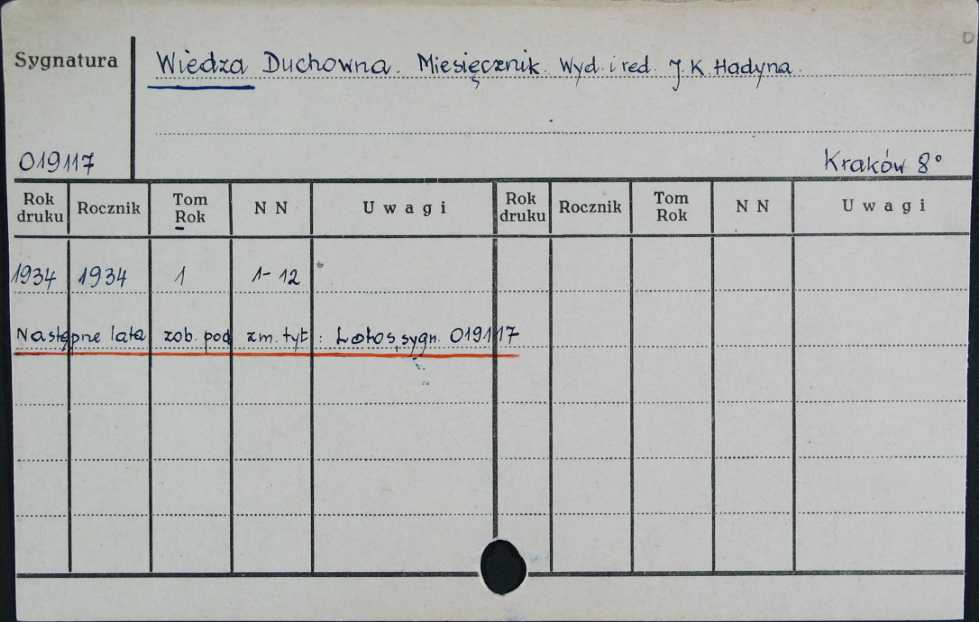 Sygnatura Wiedza Duchowna. Miesięcznik. Wyd. i red. J. K. Hadyna.
019117 Kraków 8°
Rok druku Rocznik Tom Rok N N Uwagi Rok druku Rocznik Tom Rok N N Uwagi
1934 1934 1 1-12
Następne lata zob. pod zm. tyt.: Lotos, sygn. 019117